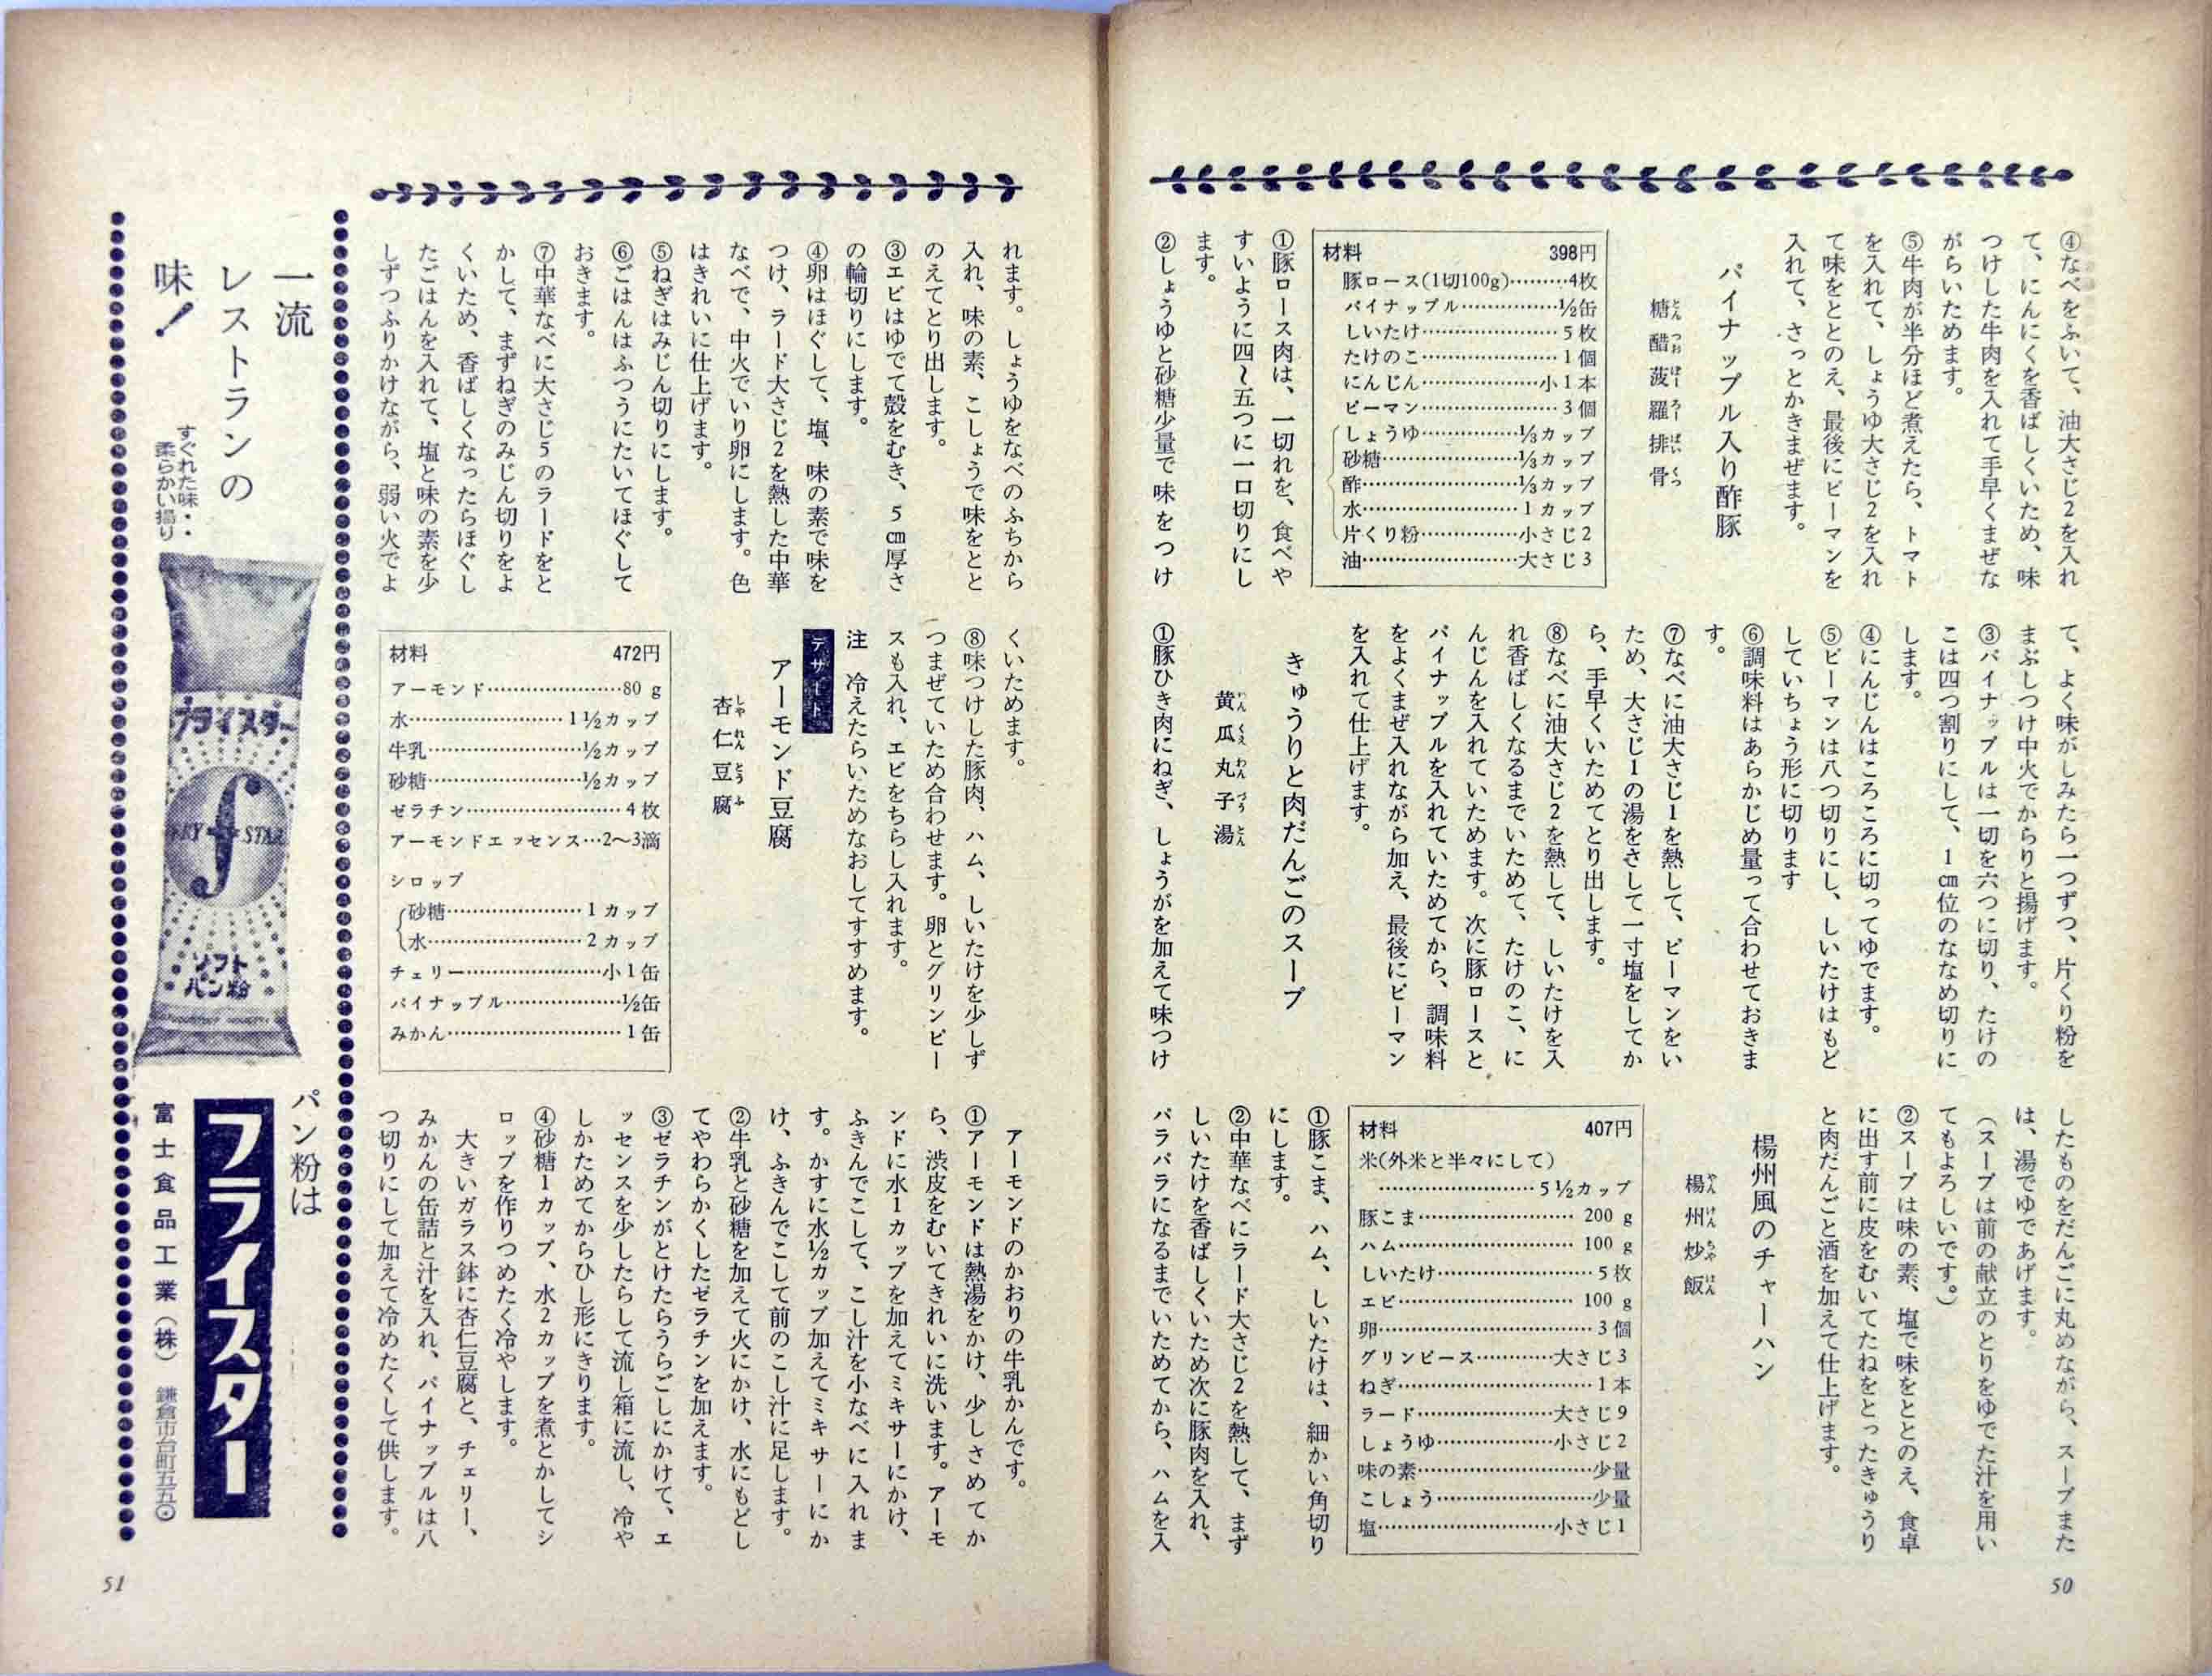 ④なべをふいて、油大さじ2を入れ
て、にんにくを香ばしくいため、味
つけした牛肉を入れて手早くまぜな
がらいためます。
⑤牛肉が半分ほど煮えたら、トマト
を入れて、しょうゆ大さじ2を入れ
て味をととのえ、最後にピーマンを
入れて、さっとかきまぜます。
パイナップル入り酢豚
糖醋菠羅排骨
とんつおぽーろーぱいくつ
材料 398円
豚ロース(1切100g)………4枚
パイナップル……………½缶
しいたけ…………………5枚
たけのこ…………………1個
にんじん………………小1本
ピーマン…………………3個
しょうゆ……………⅓カップ
砂糖…………………⅓カップ
酢……………………⅓カップ
水……………………1カップ
片くり粉……………小さじ2
油……………………大さじ3
①豚ロース肉は、一切れを、食べや
すいように四〜五つに一口切りにし
ます。
②しょうゆと砂糖少量で味をつけ
て、よく味がしみたら一つずつ、片くり粉を
まぶしつけ中火でからりと揚げます。
③パイナップルは一切を六つに切り、たけの
こは四つ割りにして、1cm位のななめ切りに
します。
④にんじんはころころに切ってゆでます。
⑤ピーマンは八つ切りにし、しいたけはもど
していちょう形に切ります
⑥調味料はあらかじめ量って合わせておきま
す。
⑦なべに油大さじ1を熱して、ピーマンをい
ため、大さじ1の湯をさして一寸塩をしてか
ら、手早くいためてとり出します。
⑧なべに油大さじ2を熱して、しいたけを入
れ香ばしくなるまでいためて、たけのこ、に
んじんを入れていためます。次に豚ロースと
パイナップルを入れていためてから、調味料
をよくまぜ入れながら加え、最後にピーマン
を入れて仕上げます。
きゅうりと肉だんごのスープ
黄瓜丸子湯
わんくえわんづうとん
①豚ひき肉にねぎ、しょうがを加えて味つけ
したものをだんごに丸めながら、スープまた
は、湯でゆであげます。
(スープは前の献立のとりをゆでた汁を用い
てもよろしいです。)
②スープは味の素、塩で味をととのえ、食卓
に出す前に皮をむいてたねをとったきゅうり
と肉だんごと酒を加えて仕上げます。
楊州風のチャーハン
楊州炒飯
やんけんちゃはん
材料 407円
米(外米と半々にして)
……………………5½カップ
豚こま…………………… 200 g
ハム……………………… 100 g
しいたけ……………………5枚
エビ……………………… 100 g
卵……………………………3個
グリンピース…………大さじ3
ねぎ…………………………1本
ラード…………………大さじ9
しょうゆ………………小さじ2
味の素………………………少量
こしょう……………………少量
塩………………………小さじ1
①豚こま、ハム、しいたけは、細かい角切り
にします。
②中華なべにラード大さじ2を熱して、まず
しいたけを香ばしくいため次に豚肉を入れ、
パラパラになるまでいためてから、ハムを入
50
れます。しょうゆをなべのふちから
入れ、味の素、こしょうで味をとと
のえてとり出します。
③エビはゆでて殻をむき、5cm厚さ
の輪切りにします。
④卵はほぐして、塩、味の素で味を
つけ、ラード大さじ2を熱した中華
なべで、中火でいり卵にします。色
はきれいに仕上げます。
⑤ねぎはみじん切りにします。
⑥ごはんはふつうにたいてほぐして
おきます。
⑦中華なべに大さじ5のラードをと
かして、まずねぎのみじん切りをよ
くいため、香ばしくなったらほぐし
たごはんを入れて、塩と味の素を少
しずつふりかけながら、弱い火でよ
くいためます。
⑧味つけした豚肉、ハム、しいたけを少しず
つまぜていため合わせます。卵とグリンピー
スも入れ、エビをちらし入れます。
注 冷えたらいためなおしてすすめます。
デザート
アーモンド豆腐
杏仁豆腐
しゃれんとうふ
材料 472円
アーモンド…………………80 g
水……………………1½カップ
牛乳……………………½カップ
砂糖……………………½カップ
ゼラチン……………………4枚
アーモンドエッセンス…2〜3滴
シロップ
砂糖…………………1カップ
水……………………2カップ
チェリー…………………小1缶
パイナップル………………½缶
みかん………………………1缶
アーモンドのかおりの牛乳かんです。
①アーモンドは熱湯をかけ、少しさめてか
ら、渋皮をむいてきれいに洗います。アーモ
ンドに水1カップを加えてミキサーにかけ、
ふきんでこして、こし汁を小なべに入れま
す。かすに水½カップ加えてミキサーにか
け、ふきんでこして前のこし汁に足します。
②牛乳と砂糖を加えて火にかけ、水にもどし
てやわらかくしたゼラチンを加えます。
③ゼラチンがとけたらうらごしにかけて、エ
ッセンスを少したらして流し箱に流し、冷や
しかためてからひし形にきります。
④砂糖1カップ、水2カップを煮とかしてシ
ロップを作りつめたく冷やします。
大きいガラス鉢に杏仁豆腐と、チェリー、
みかんの缶詰と汁を入れ、パイナップルは八
つ切りにして加えて冷めたくして供します。
一流
レストランの
味!
すぐれた味・・
柔らかい揚り
フライスター
FRY STAR
f
ソフト
パン粉
パン粉は
フライスター
富士食品工業(株) 鎌倉市台町五五〇
51